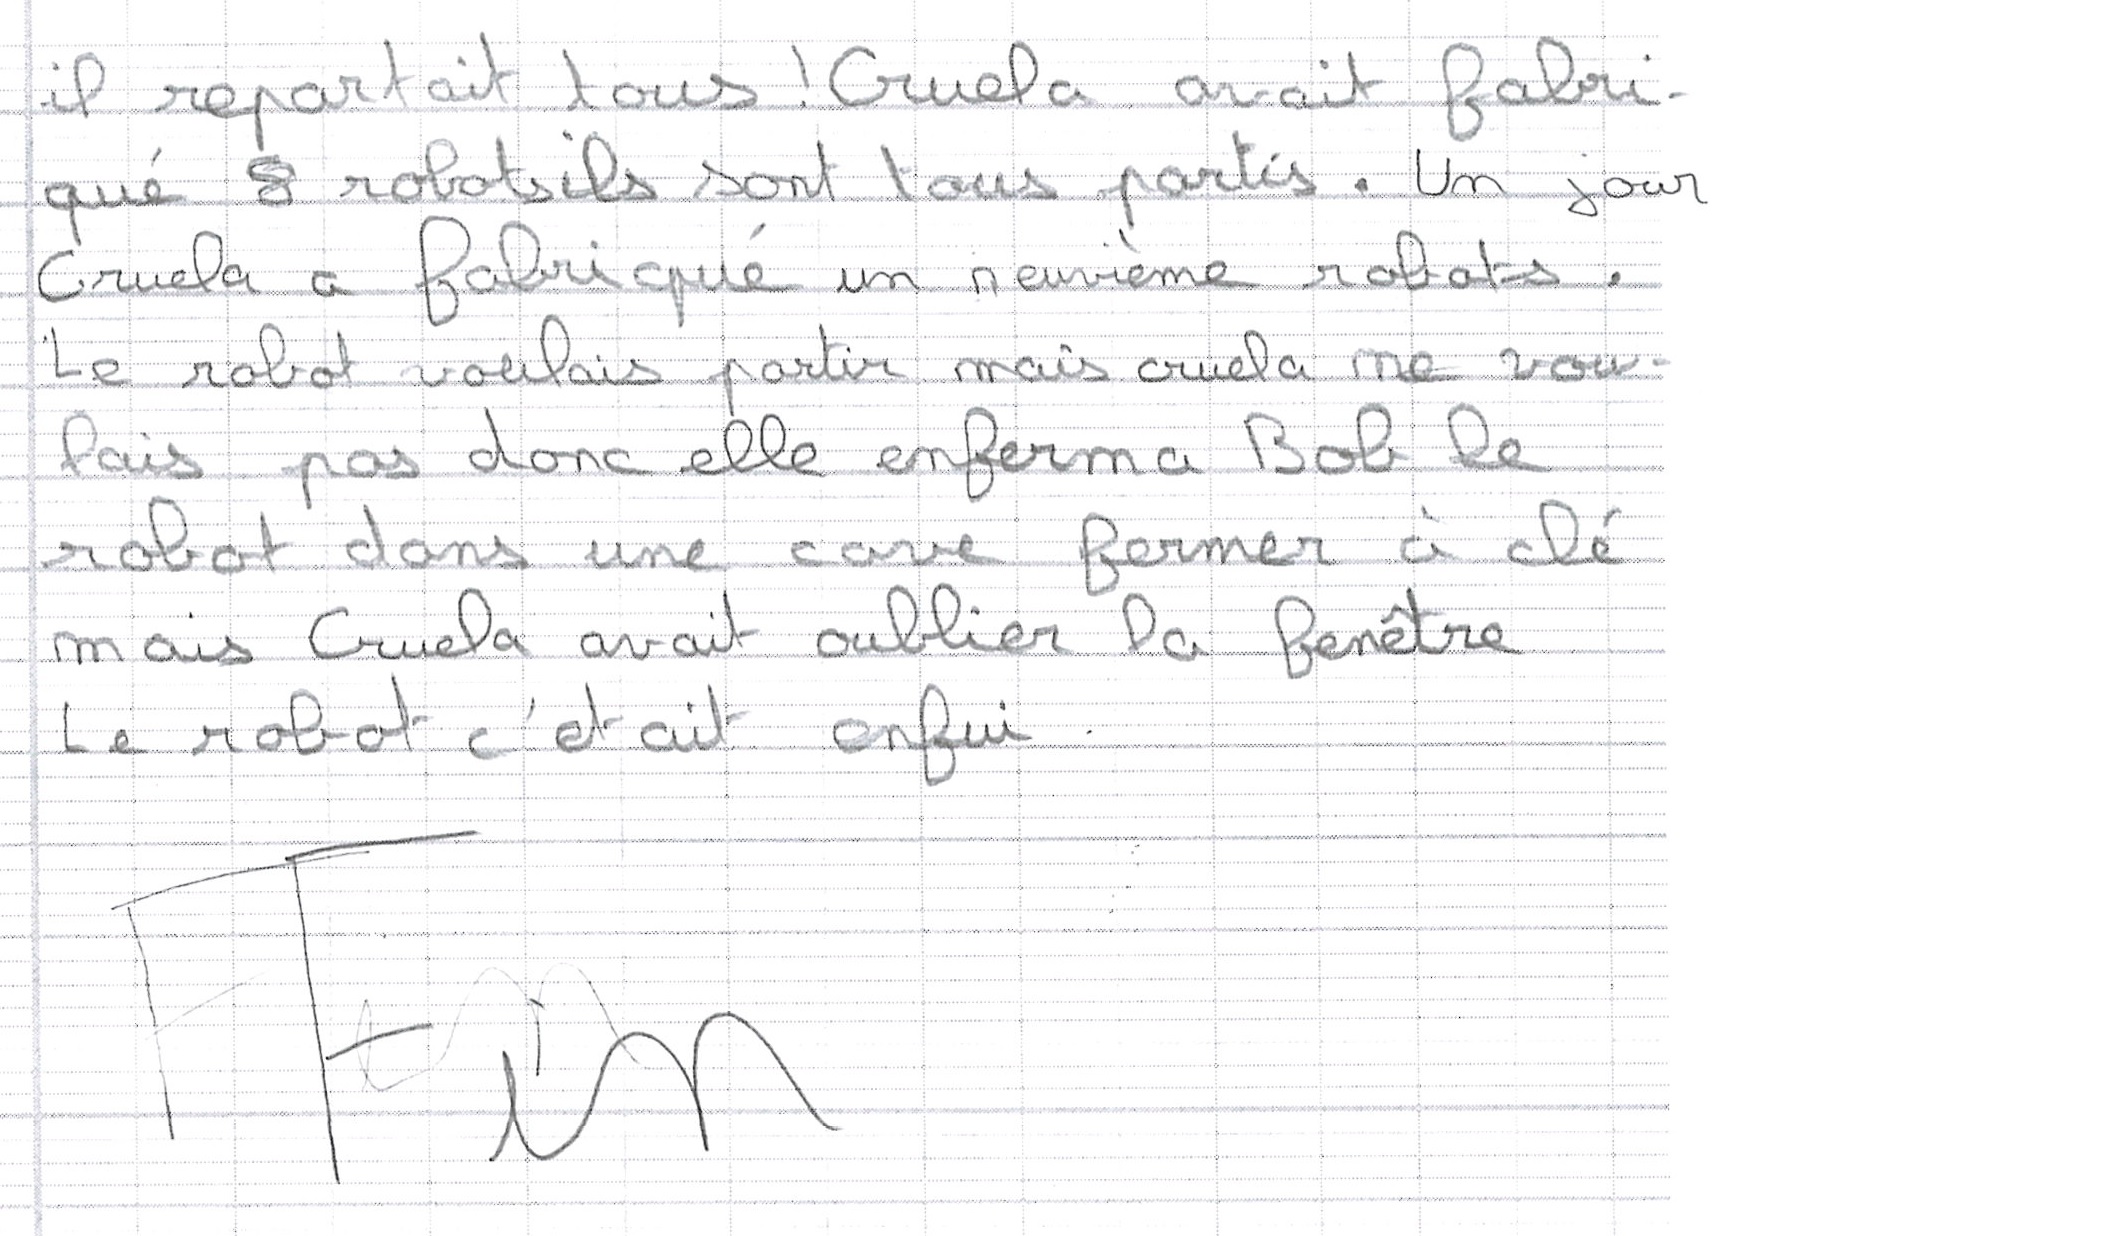 il repartait tous ! Cruela avait fabri-
qué 8 robots ils sont tous partis. Un jour
Cruela a fabriqué un neuvième robots.
Le robot voulais partir mais cruela ne vou-
lais pas donc elle enferma Bob le
robot dans une cave fermer à clé
mais Cruela avait oublier la fenêtre
Le robot c'était enfui.
Fin